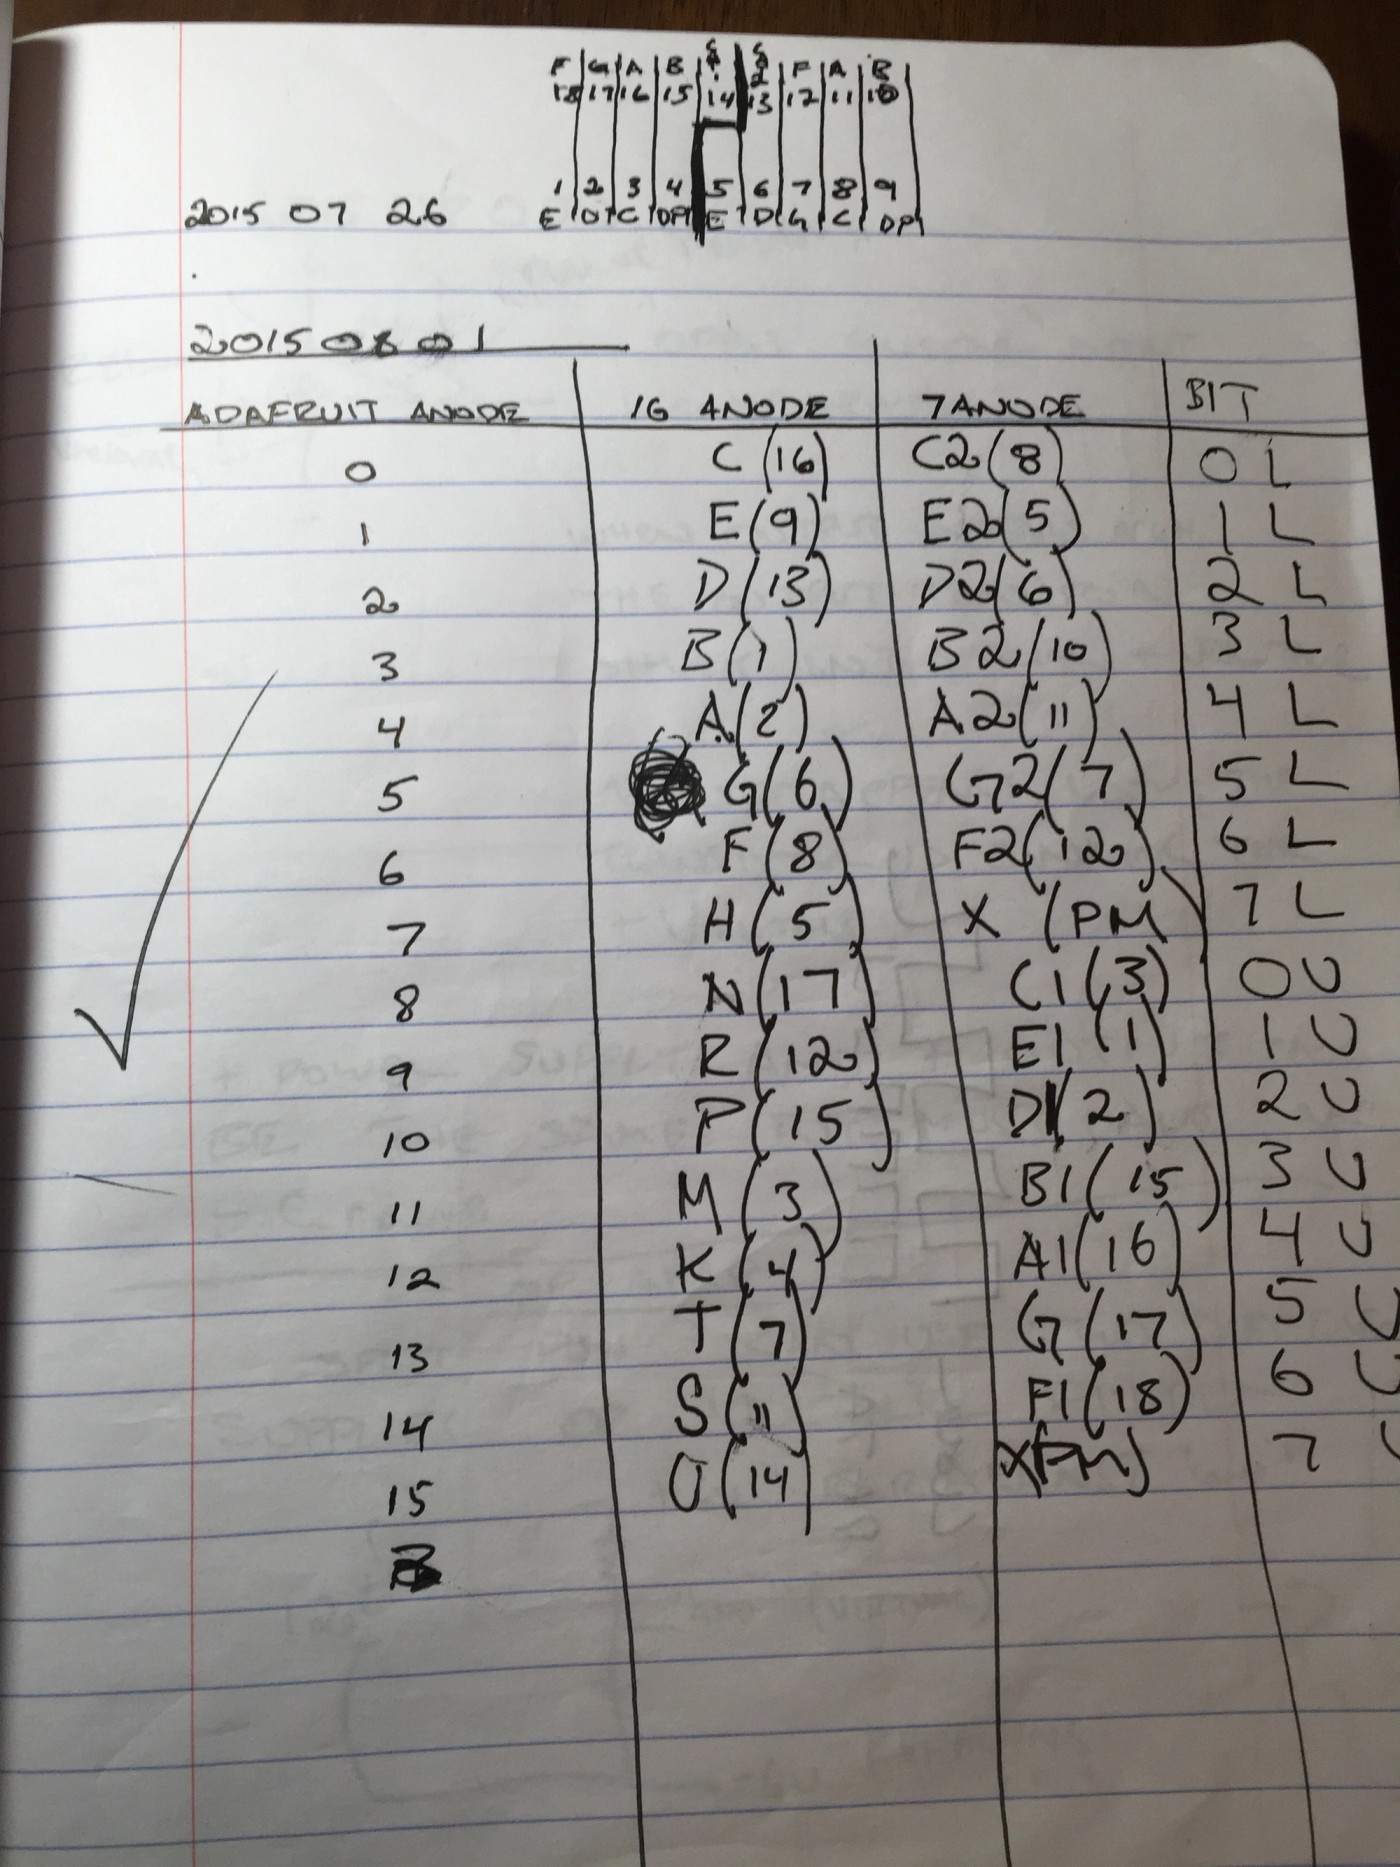 F G A B F A B
18 17 16 15 14 13 12 11 10
1 2 3 4 5 6 7 8 9
2015 07 26 E D C DP E D G C DP
2015 08 01
ADAFRUIT ANODE 16 ANODE 7 ANODE BIT
0 C (16) C2 (8) 0 L
1 E (9) E2 (5) 1 L
2 D (13) D2 (6) 2 L
3 B (1) B2 (10) 3 L
4 A (2) A2 (11) 4 L
5 G (6) G2 (7) 5 L
6 F (8) F2 (12) 6 L
7 H (5) X (PM) 7 L
8 N (17) C1 (3) 0 U
9 R (12) E1 (1) 1 U
10 P (15) D1 (2) 2 U
11 M (3) B1 (15) 3 U
12 K (4) A1 (16) 4 U
13 T (7) G (17) 5 U
14 S (11) F1 (18) 6 U
15 U (14) X (PM) 7 U